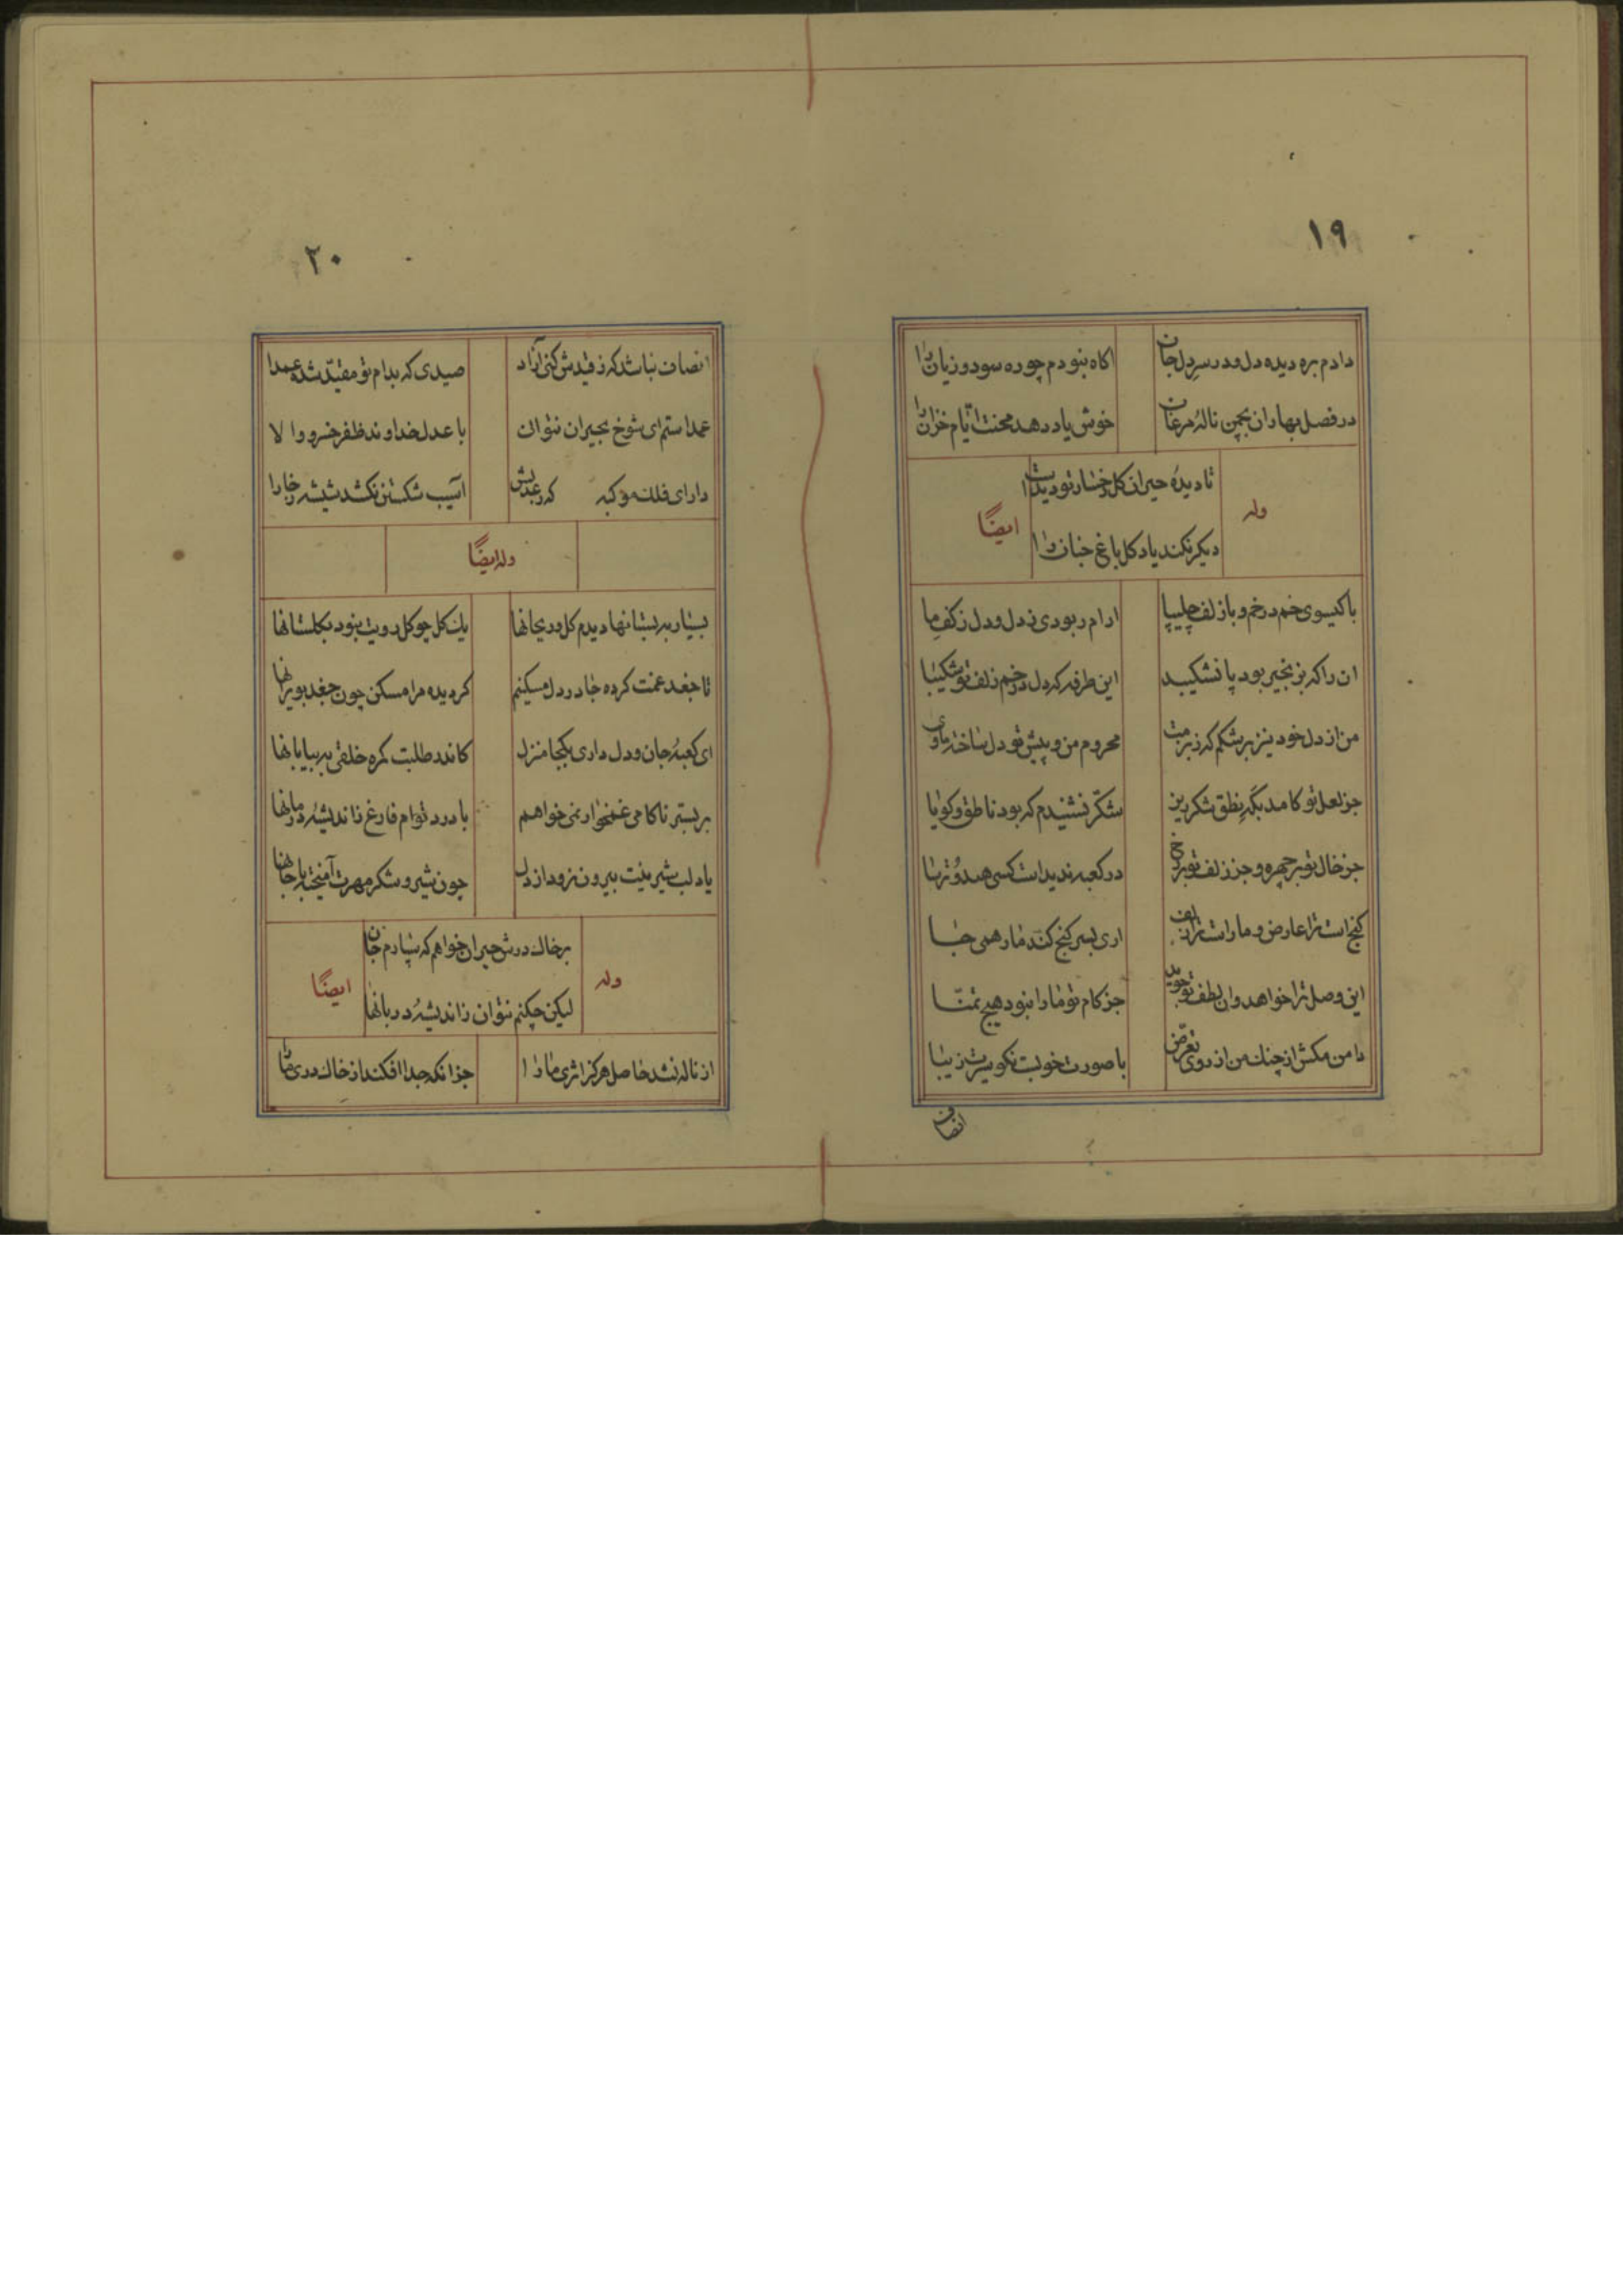 ١٩
دادم بره دیده دل و در سر دل جان اکاه نبودم چو ره سود و زیان را
در فصل بهاران بچمن نالهٔ مرغان خوش یاد دهد محنت ایّام خزان را
وله
تا دیدهٔ حیران کل رخسار تو دیدست
ایضًا
دیکر نکند یاد کل باغ جنان را
با کیسوی خم در خم و با زلف چلیپا ارام ربودی ز دل و دل ز کف ما
ان را که بزنجیر بود پا نشکیبد این طرفه که دل در خم زلف تو شکیبا
من از دل خود نیز برشکم که ز برمت محروم من و پیش تو دل ساخته ماوی
جز لعل تو کامد بگه نطق شکر ریز شکّر نشنیدم که بود ناطق و کویا
جز خال تو بر چهره و جز زلف تو بر رخ در کعبه ندیدست کسی هندو و ترسا
کنج است ترا عارض و مار است ترا زلف اری بسر کنج کند مار همی جا
این وصل ترا خواهد و ان لطف تو جوید جز کام تو ما را نبود هیچ تمنّا
دامن مکش از چنک من از روی تعرّض با صورت خوبت نکو سیرت زیبا
انصاف
٢٠
انصاف نباشد که ز قیدش کنی آزاد صیدی که بدام تو مقیّد شده عمدا
عمدا ستم ای شوخ بحیران نتوان با عدل خداوند ظفر خسرو والا
دارای فلک موکبه که ز عدلش آسیب شکستن نکشد شیشه ز خارا
وله ایضًا
بسیار به بستانها دیدم کل و ریحانها یک کل چو کل رویت نبود بکلستانها
تا جغد غمت کرده جا در دل مسکینم کردیده مرا مسکن چون جغد بویرانها
ای کعبهٔ جان و دل داری بکجا منزل کاندر طلبت کمره خلقی به بیابانها
بر بستر ناکامی غمخوار نمی‌خواهم با درد توام فارغ ز اندیشهٔ درمانها
یاد لب شیرینت بیرون نرود از دل چون شیر و شکر مهرت آمیخته با جانها
بر خاک درش حیران خواهم که سپارم جان
وله ایضًا
لیکن چکنم نتوان ز اندیشهٔ دربانها
از ناله نشد حاصل هرکز اثری ما را جز انکه جدا افکند از خاک دری ما را